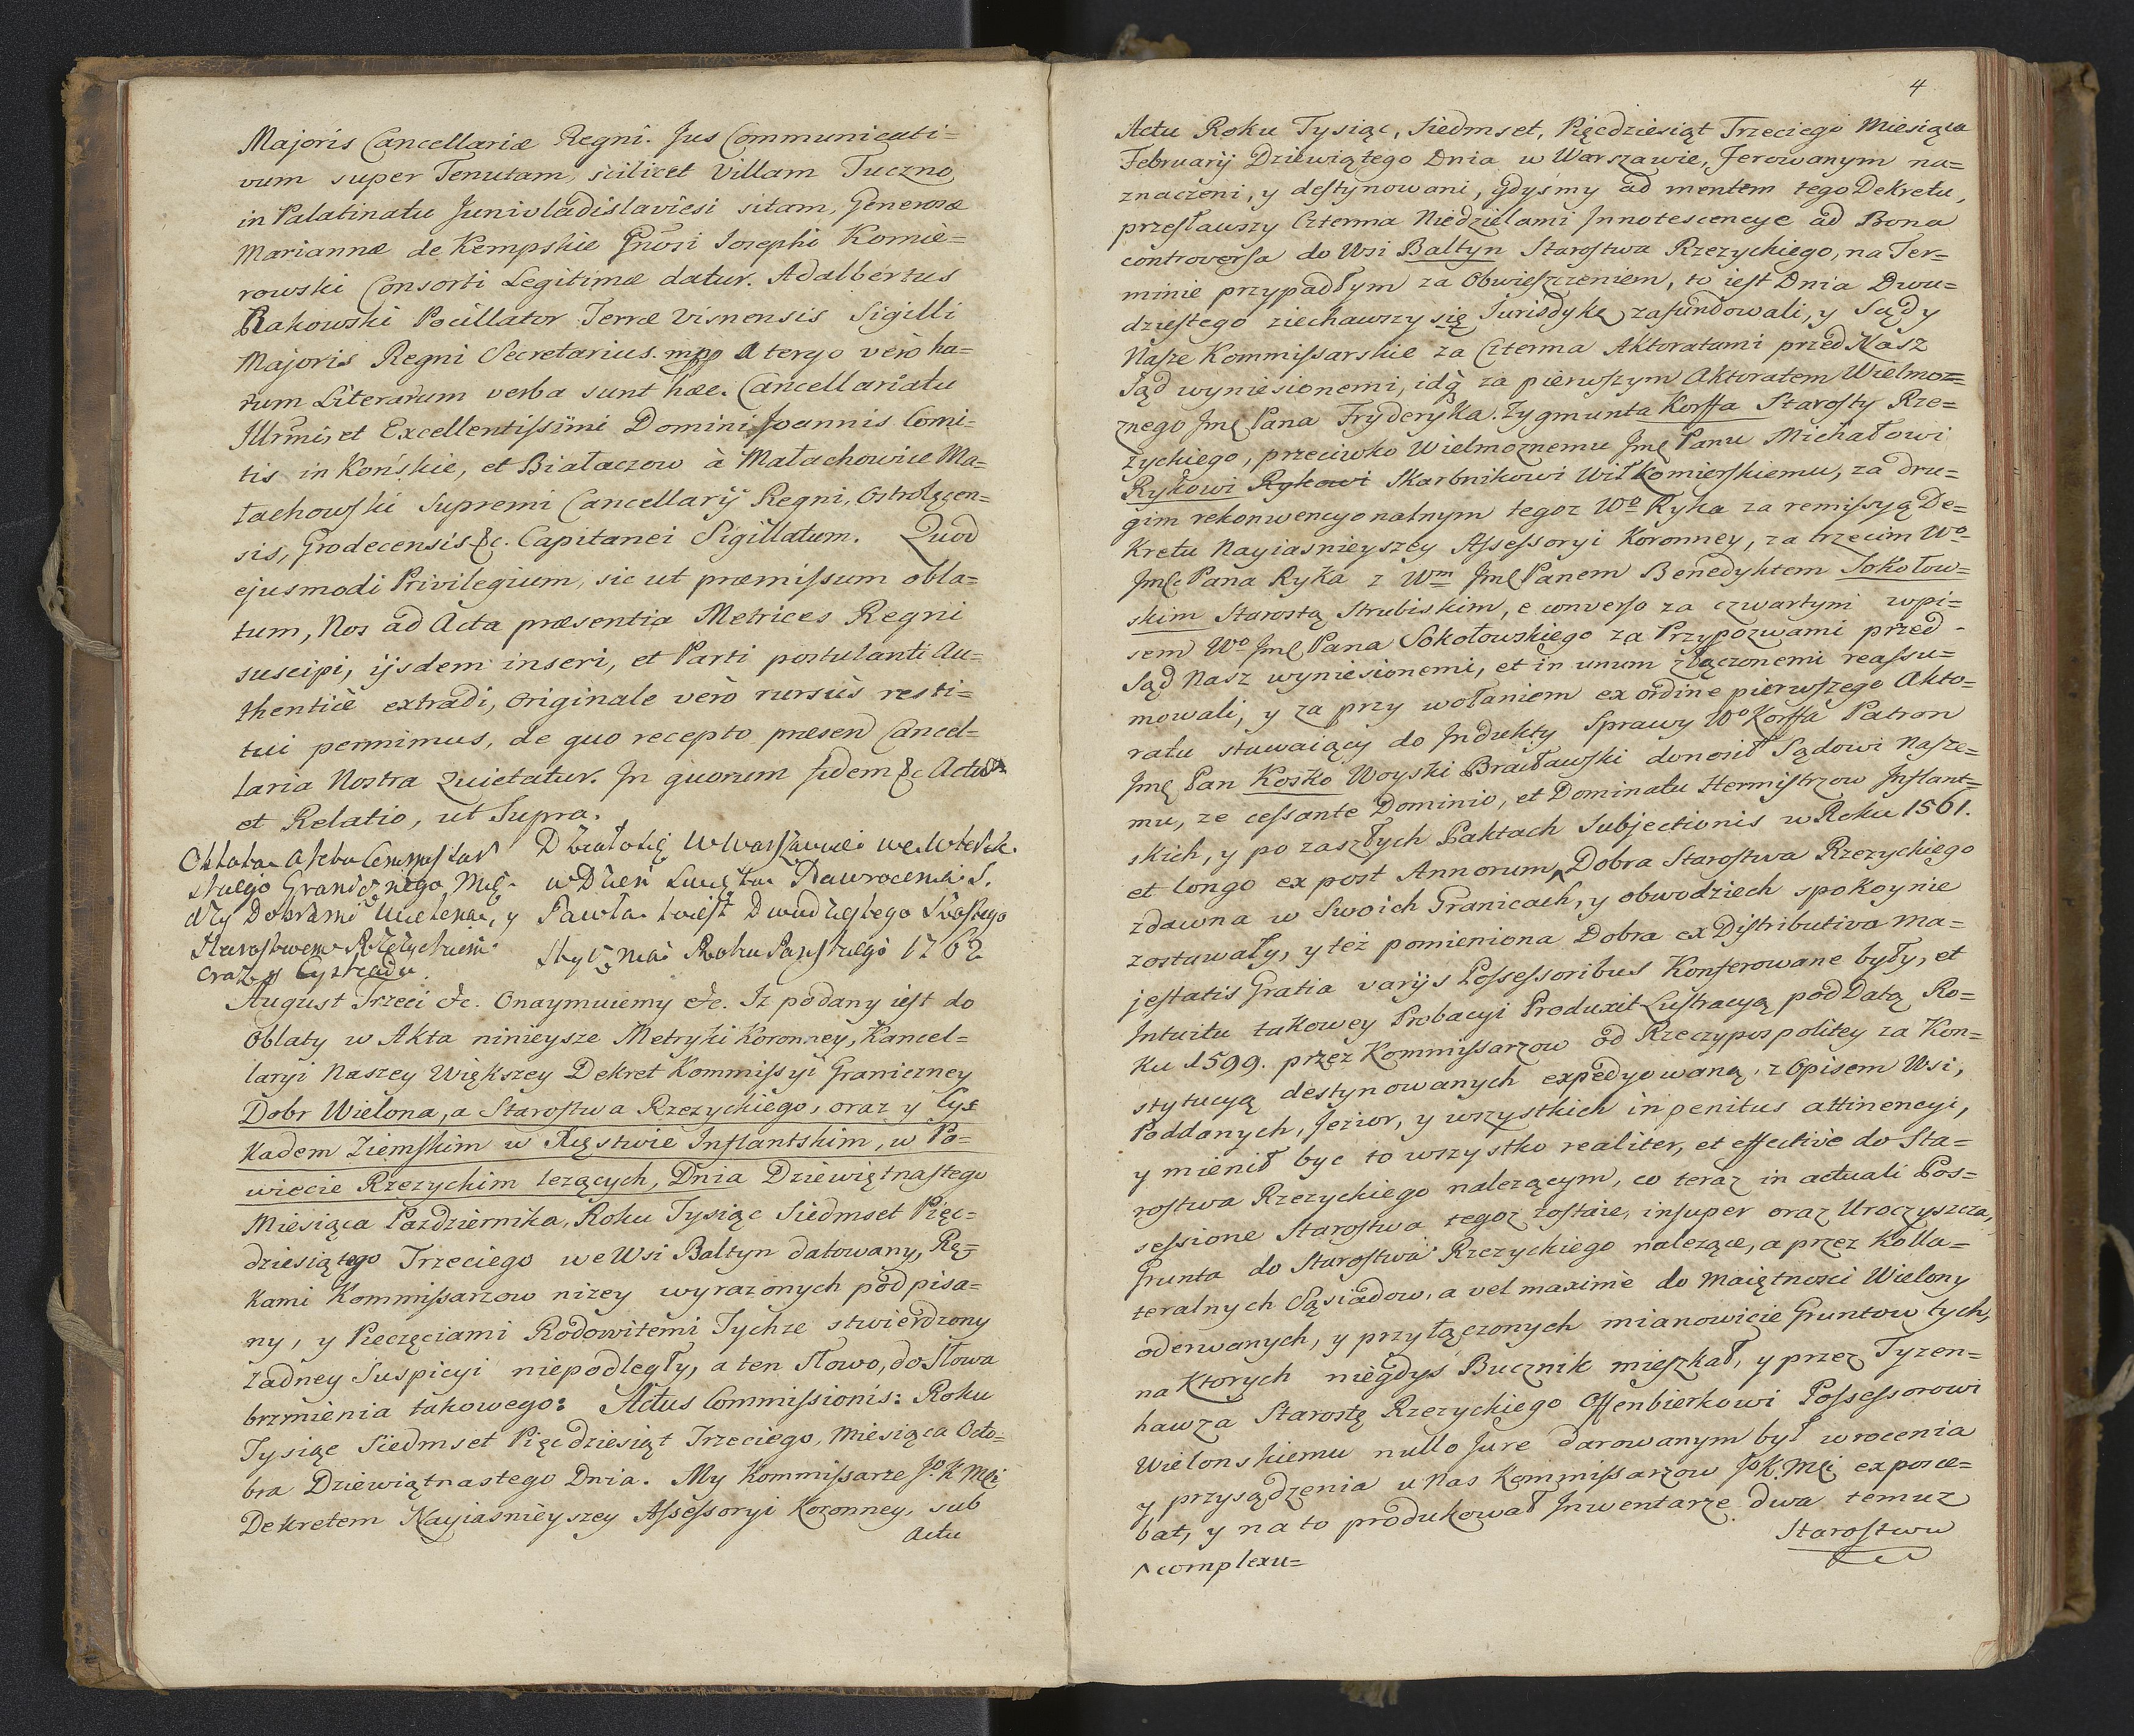 Majoris Cancellariæ Regni. Jus Communicati=
vum super Tenutam, scilicet Villam Tuczno
in Palatinatu Junivladislaviesi sitam, Generosæ
Mariannæ de Kempskie Gnosi Josephi Komie=
rowski Consorti Legitimæ datur. Adalbertus
Rakowski Pocillator Terræ Visnensis Sigilli
Majoris Regni Secretarius. mpp A tergo verò ha=
rum Literarum verba sunt hæc. Cancellariatu
Illrmi, et Excellentissimi Domini Joannis Comi=
tis in Końskie, et Białaczow à Małachowice Ma=
łachowski Supremi Cancellarij Regni, Ostrołęcen=
sis, Grodecensis &c. Capitanei Sigillatum. Quod
ejusmodi Privilegium, sic ut præmissum obla=
tum, Nos ad Acta præsentia Metrices Regni
suscipi, ijsdem inseri, et Parti postulanti Au=
thenticè extradi, originale verò rursùs resti=
tui permimus, de quo recepto præsens Cancel=
laria Nostra quietatur. In quorum fidem &c Actum
et Relatio, ut Supra.
Działo się w Warszawie we Wtorek
w Dzień Święta Nawrocenia S.
Pawła to iest Dwudziestego Szostego
Stycznia Roku Panskiego 1762
Oblata Actu Commissar
skiego Granicznego Mię=
dzy Dobrami Wielona, y
Starostwem Rzezyckiem
oraz y Cyskadu.
August Trzeci &c. Oznaymuiemy &c. Iz podany iest do
Oblaty w Akta ninieysze Metryki Koronney, Kancel=
laryi Naszey Większey Dekret Kommissyi Graniczney
Dobr Wielona, a Starostwa Rzezyckiego, oraz y Cys=
kadem Ziemskim w Xięstwie Inflantskim, w Po=
wiecie Rzezyckim lezących, Dnia Dziewiętnastego
Miesiąca Pazdziernika, Roku Tysiąc Siedmset Pięc=
dziesiątego Trzeciego we Wsi Baltyn datowany, Rę=
kami Kommissarzow nizey wyrazonych podpisa=
ny, y Pieczęciami Rodowitemi Tychze stwierdzony
zadney Suspicyi niepodległy, a ten Słowo, do Słowa
brzmienia takowego: Actus Commissionis: Roku
Tysiąc Siedmset Pięcdziesiąt Trzeciego, Miesiąca Octo=
bra Dziewiątnastego Dnia. My Kommissarze Jo. K. Mci
Dekretem Nayiasnieyszey Assessoryi Koronney, sub
Actu
4
Actu Roku Tysiąc, Siedmset, Pięcdziesiąt Trzeciego Miesiąca
Februarij Dziewiątego Dnia w Warszawie, ferowanym na=
znaczeni, y destynowani, gdysmy ad mentem tego Dekretu,
przesławszy Czterma Niedzielami Innotescencye ad Bona
controversa do Wsi Baltyn Starostwa Rzezyckiego, na Ter=
minie przypadłym za Obwieszczeniem, to iest Dnia Dwu=
dziestego ziechawszy się Jurisdykę zafundowali, y Sądy
Nasze Kommissarskie za Czterma Aktoratami przed Nasz
Sąd wyniesionemi, idq za pierwszym Aktoratem Wielmoz=
znego Jmę Pana Fryderyka Zygmunta Korffa Starosty Rze=
zyckiego, przeciwko Wielmoznemu Jmę Panu Michałowi
Rykowi Rykowi Skarbnikowi Wiłkomierskiemu, za dru=
gim rekonwencyonalnym tegoz Wo Ryka za remissyą De=
kretu Nayiasnieyszey Assessoryi Koronney, za trzecim Wo=
Jmę Pana Ryka z Wm Jmę Panem Benedyktem Sokołow=
skim Starostą Strubiskim, e converso za czwartym wpi=
sem Wo Jmę Pana Sokołowskiego za Przypozwami przed=
Sąd Nasz wyniesionemi, et in unum złączonemi reassu=
mowali, y za przywołaniem ex ordine pierwszego Akto=
ratu stawaiący do Indukty Sprawy Wo Korffa Patron
Jmę Pan Kosko Woyski Bracławski donosił Sądowi Nasze=
mu, ze cessante Dominio, et Dominatu Hermistrzow Inflant=
skich, y po zaszłych Paktach Subjectionis w Roku 1561.
et longo ex post Annorum ^ Dobra Starostwa Rzezyckiego
zdawna w Swoich Granicach, y obwodziech spokoynie
zostawały, y też pomieniona Dobra ex Distributiva Ma=
jestatis Gratia varijs Possessoribus Konferowane były, et
Intuitu takowey Probacyi Produxit Lustracyą pod Datą Ro=
ku 1599. przez Kommissarzow od Rzeczypospolitey za Kon=
stytucyą destynowanych expedyowaną, z Opisem Wsi,
Poddanych, Jezior, y wszystkich in penitus attinencyi,
y mienił byc to wszystko realiter, et effectivè do Sta=
rostwa Rzezyckiego nalezącym, co teraz in actuali Pos=
sessione Starostwa tegoz zostaie, insuper oraz Uroczyszcza,
Grunta do Starostwa Rzezyckiego nalezące, a przez Kolla=
teralnych Sąsiadow, a vel maximè do Maiętnosci Wielony
oderwanych, y przyłączonych mianowicie Gruntow tych,
na ktorych niegdys Bucznik mieszkał, y przez Tyzen=
hawza Starostę Rzezyckiego Offenbierkowi Possessorowi
Wielonskiemu nullo Jure darowanym był wrocenia
y przysądzenia u Nas Kommissarzow Jo K. Mci exposce=
bat, y na to produkował Inwentarze dwa temuz
Starostwu
^ complexu=